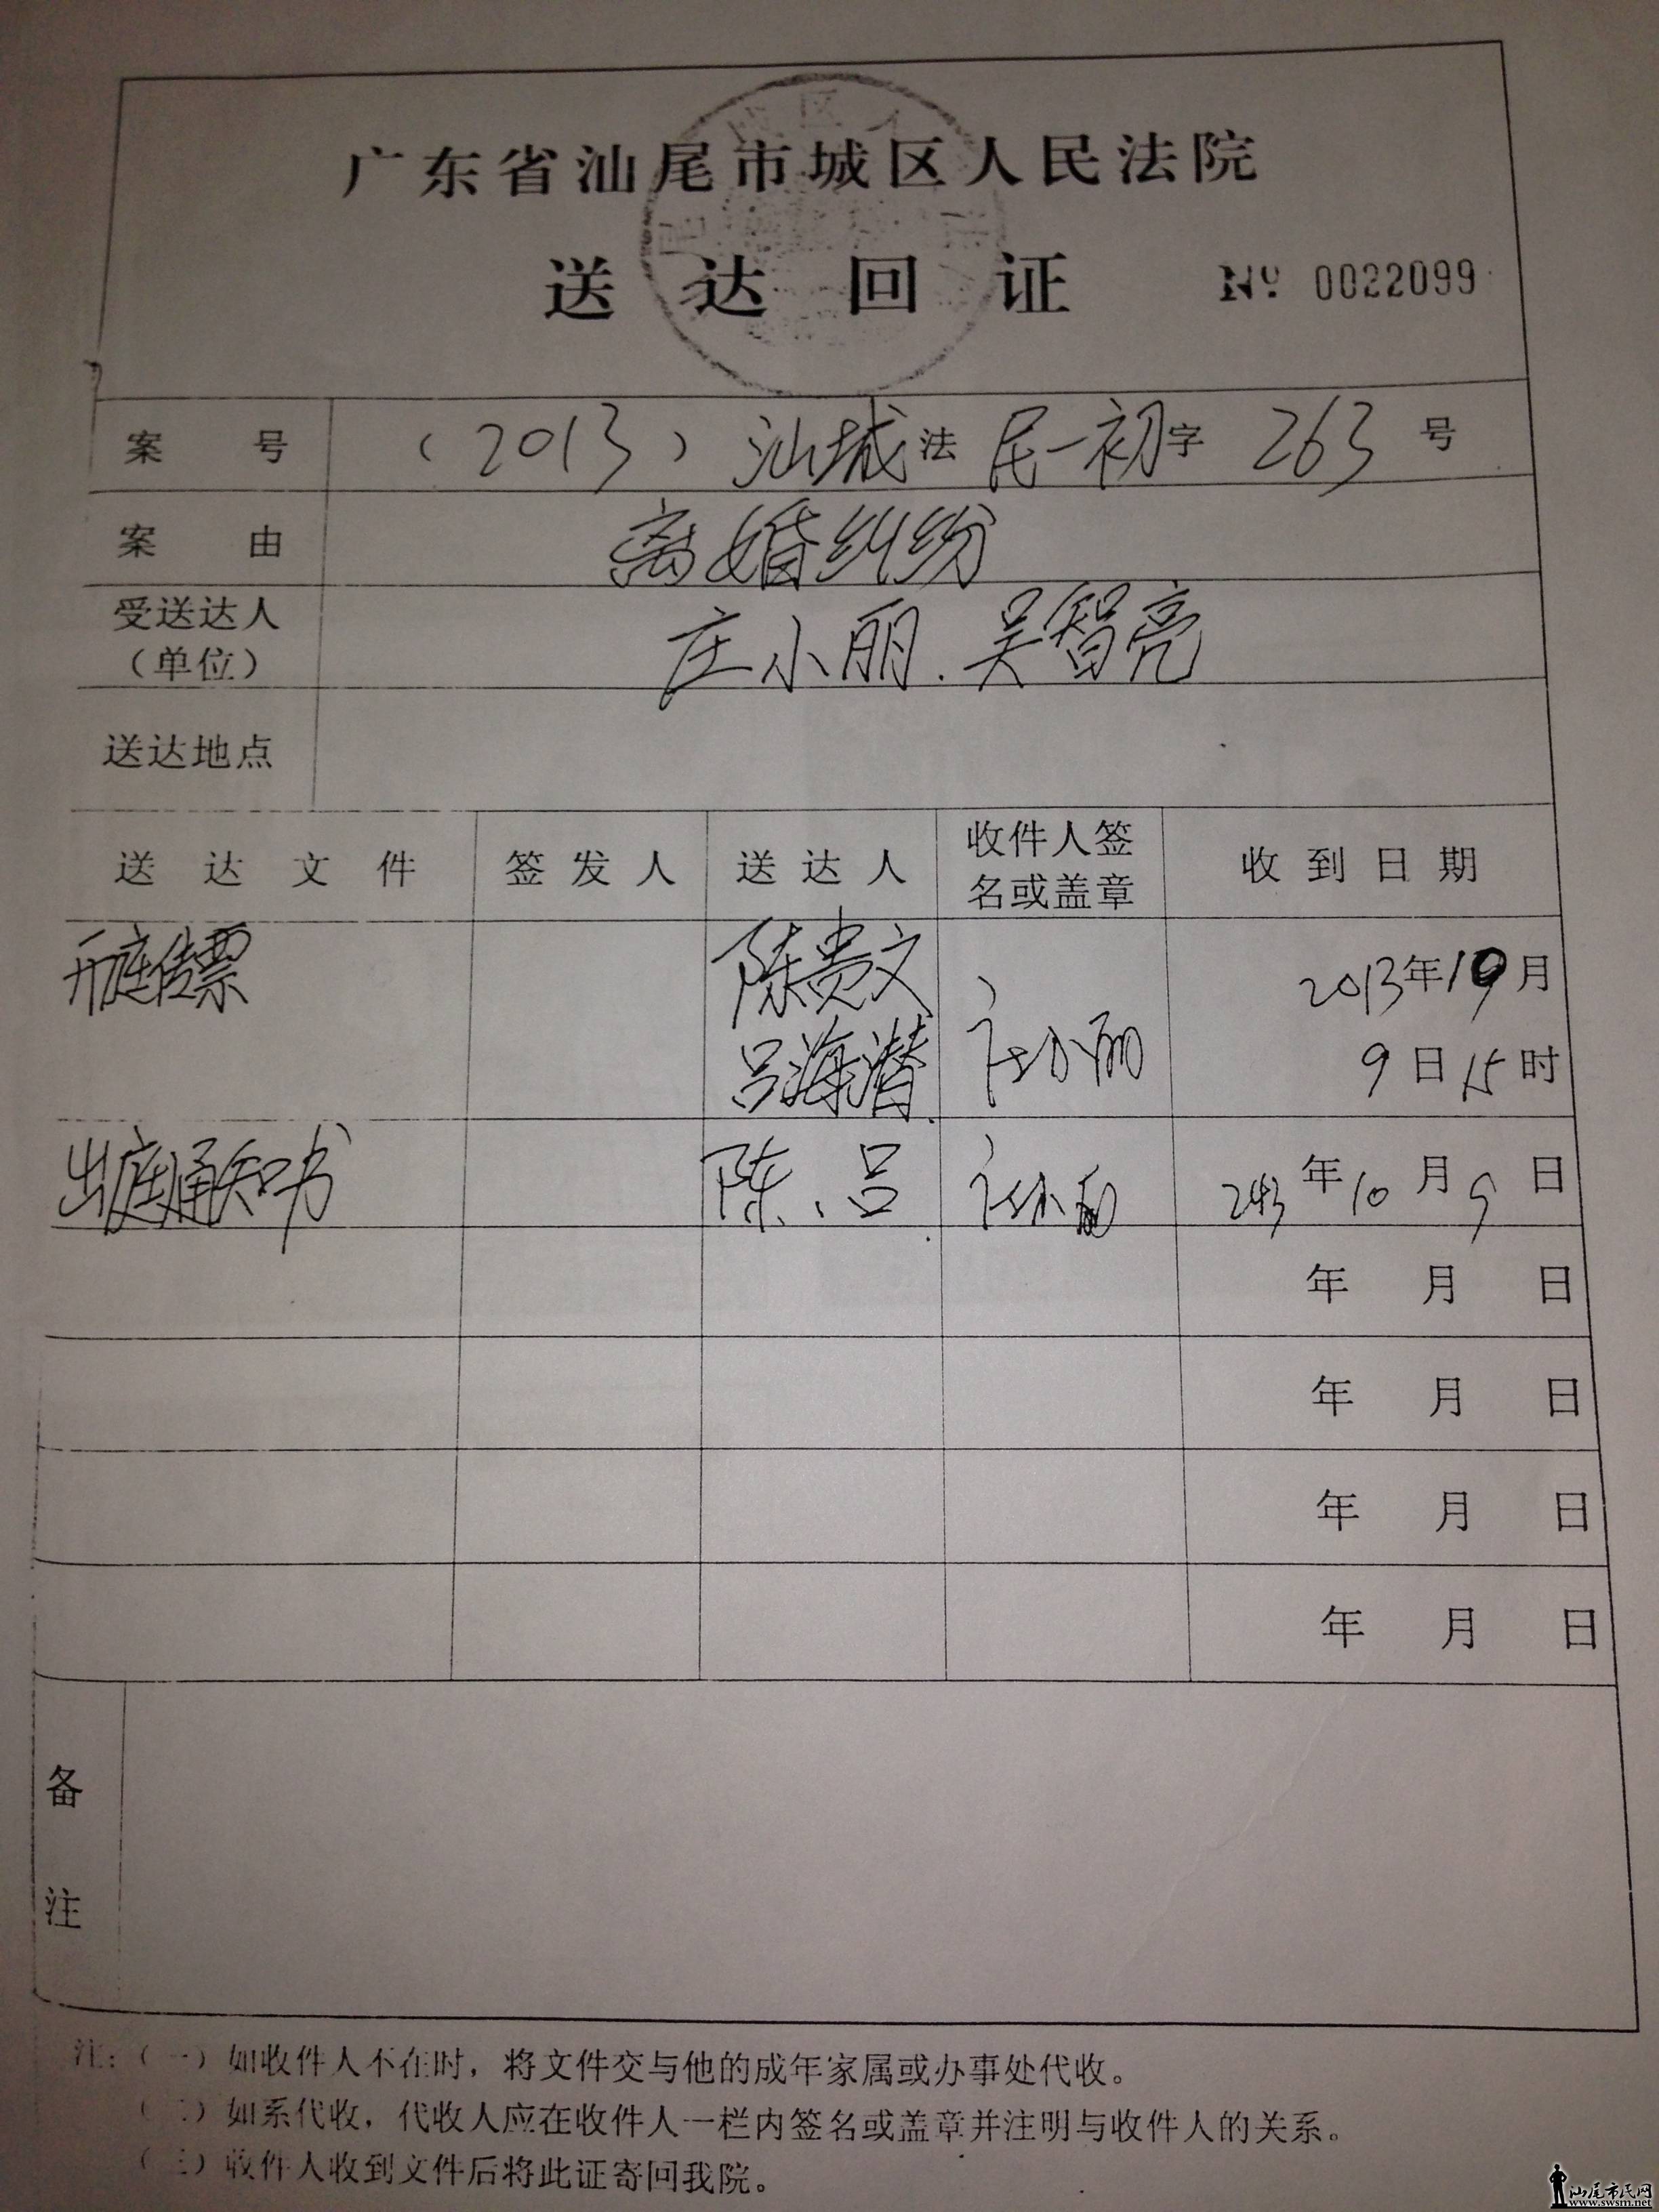 广东省汕尾市城区人民法院
送达回证 № 0022099
案号 (2013)汕城法民一初字263号
案由 离婚纠纷
受送达人(单位) 庄小丽.吴智亮
送达地点
送达文件 签发人 送达人 收件人签名或盖章 收到日期
开庭传票 陈贵文 吕海潜 庄小丽 2013年10月9日15时
出庭通知书 陈、吕 庄小丽 2013年10月9日
年 月 日
年 月 日
年 月 日
年 月 日
备注
注:(一)如收件人不在时,将文件交与他的成年家属或办事处代收。
(二)如系代收,代收人应在收件人一栏内签名或盖章并注明与收件人的关系。
(三)收件人收到文件后将此证寄回我院。
汕尾市民网
www.swsm.net